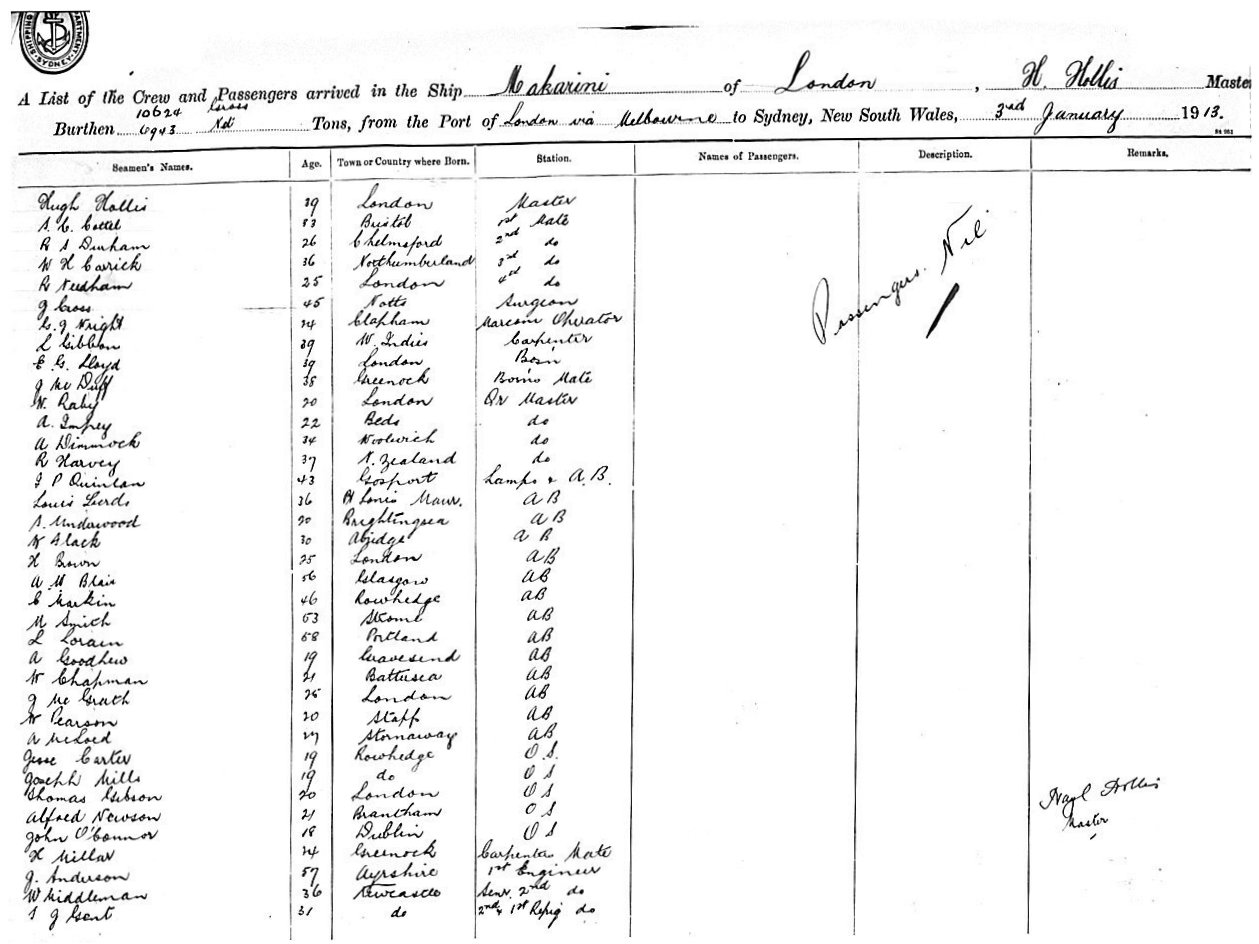 SHIPPING DEPARTMENT SYDNEY
A List of the Crew and Passengers arrived in the Ship Makarini of London, H. Hollis Master
Burthen 10624 Gross 6943 Net Tons, from the Port of London via Melbourne to Sydney, New South Wales, 3rd January 1913.
Seamen's Names. Age. Town or Country where Born. Station. Names of Passengers. Description. Remarks.
Hugh Hollis 39 London Master
S. C. Cottel 33 Bristol 1st Mate
R S Denham 26 Chelmsford 2nd do
W H Carrick 36 Northumberland 3rd do
R Needham 25 London 4th do
J Cross 45 Notts Surgeon
G. J Wright 24 Clapham Marconi Operator
L Gibbon 39 W. Indies Carpenter
E G. Lloyd 39 London Bos'n
J Mc Duff 38 Greenock Bos'ns Mate
W. Raby 20 London Qr Master
A. Impey 22 Beds do
A Dimmock 34 Woolwich do
R Harvey 37 N. Zealand do
J P Quinlan 43 Gosport Lamps & A.B.
Louis 36 Pt Louis Maur. A B
S. Underwood 20 Brightingsea A B
W Slack 30 A B
H Brown 25 London AB
A M Blair 56 Glasgow AB
C Markin 46 Rowhedge AB
M Smith 53 Strome AB
L Lorain 58 Portland AB
A Goodhew 19 Gravesend AB
W Chapman 21 Battersea AB
J Mc Grath 25 London AB
W Pearson 20 Staff AB
A McLoed 27 Stornaway AB
Jesse Carter 19 Rowhedge O.S.
Joseph Mills 19 do O S
Thomas Gibson 20 London O S
Alfred Newson 21 Brantham O S
John O'Connor 18 Dublin O S
H Millar 24 Greenock Carpenters Mate
J. Anderson 57 Ayrshire 1st Engineer
W Middleman 36 Newcastle Senr. 2nd do
J Gent 31 do 2nd & 1st Refrig do
Passengers. Nil
Hugh Hollis
Master